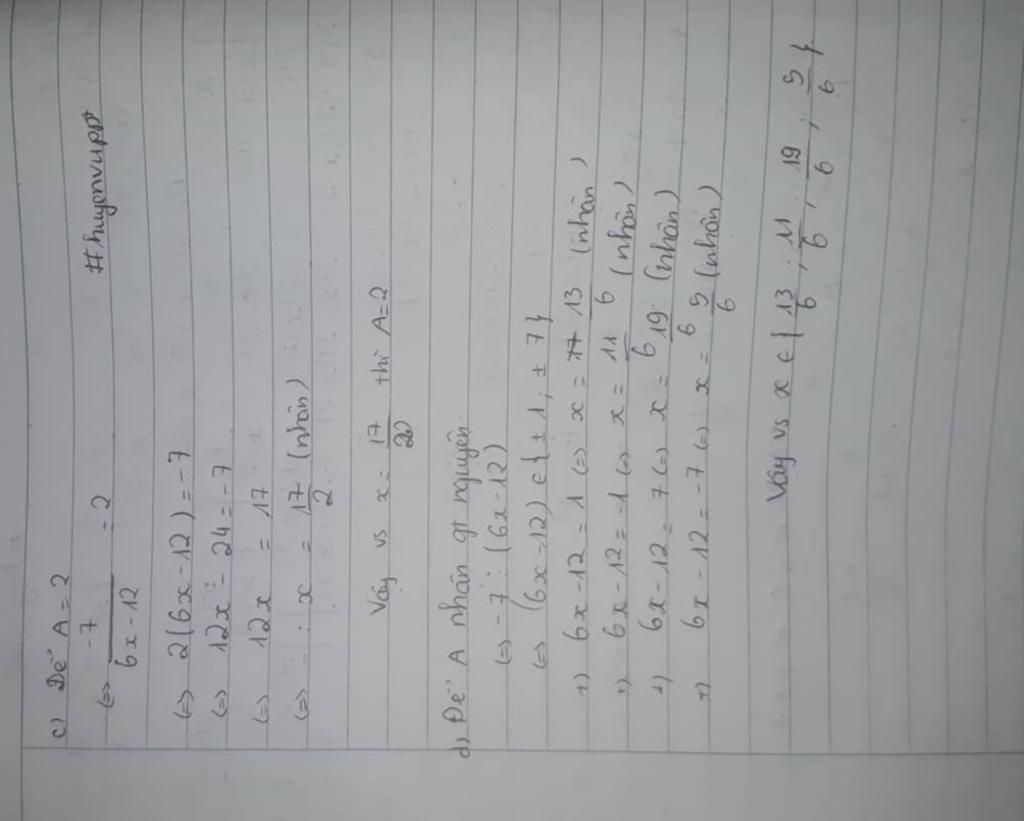 c) Để A = 2
#huyenvupp
(=) -7/(6x - 12) = 2
(=) 2(6x - 12) = -7
(=) 12x - 24 = -7
(=) 12x = 17
(=) x = 17/2 (nhân)
Vậy vs x = 17/20 thì A = 2
d) Để A nhân gt nguyên
(=) -7 ⋮ (6x - 12)
(=) (6x - 12) ∈ {± 1; ± 7}
+) 6x - 12 = 1 (=) x = 13/6 (nhân)
+) 6x - 12 = -1 (=) x = 11/6 (nhân)
+) 6x - 12 = 7 (=) x = 19/6 (nhân)
+) 6x - 12 = -7 (=) x = 5/6 (nhân)
Vậy vs x ∈ {13/6; 11/6; 19/6; 5/6}